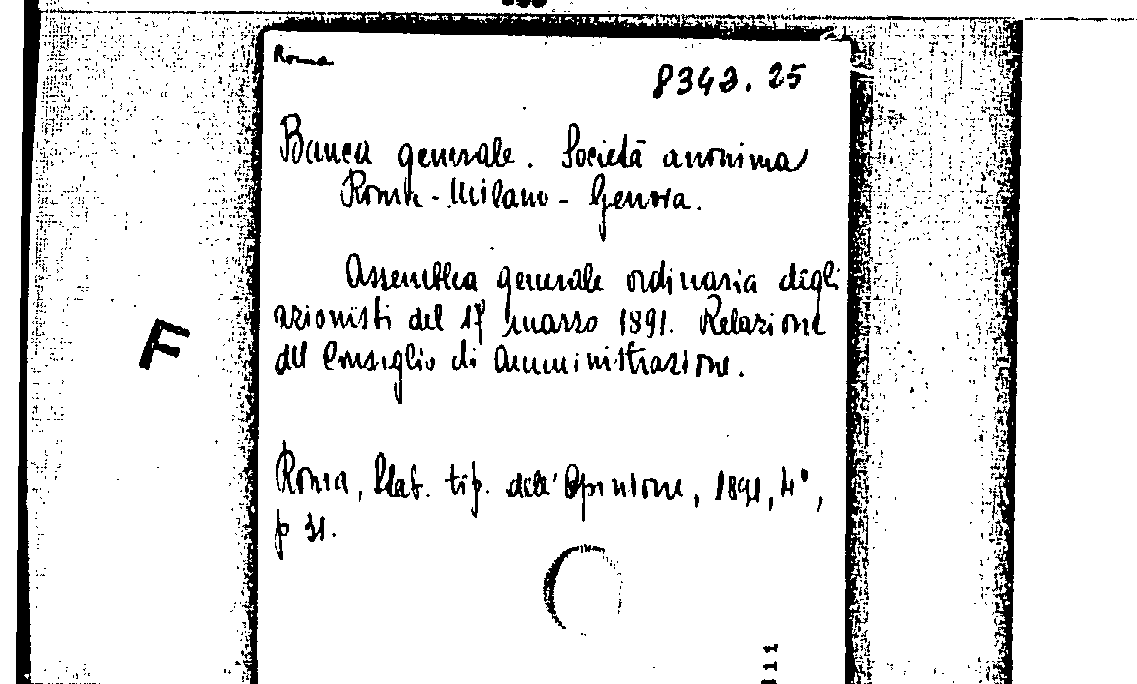 Roma
8343.25
Banca generale. Società anonima
Roma - Milano - Genova.
Assemblea generale ordinaria degli
azionisti del 17 marzo 1891. Relazione
del Consiglio di Amministrazione.
F
Roma, Stab. tip. dell'Opinione, 1891, 4°,
p 31.